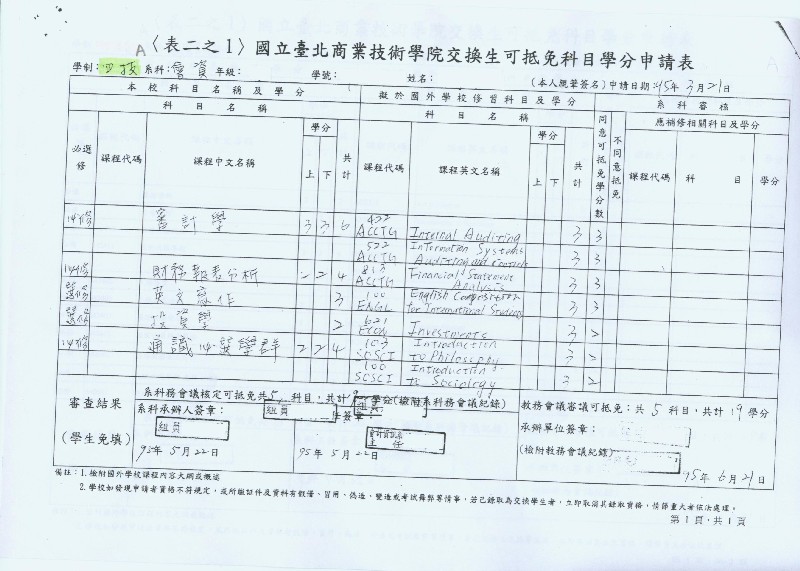 A〈表二之1〉國立臺北商業技術學院交換生可抵免科目學分申請表
學制：四技 系科：會資 年級： 學號： 姓名： (本人親筆簽名) 申請日期：95年3月21日
本校科目名稱及學分 擬於國外學校修習科目及學分 系科審核
科目名稱 科目名稱 同意可抵免學分數 不同意抵免 應補修相關科目及學分
必選修 課程代碼 課程中文名稱 學分 上 下 共計 課程代碼 課程英文名稱 學分 上 下 共計 課程代碼 科目 學分
必修 審計學 3 3 6 422 ACCTG Internal Auditing 3 3
522 ACCTG Information Systems Auditing and Controls 3 3
必修 財務報表分析 2 2 4 813 ACCTG Financial Statement Analysis 3 3
選修 英文寫作 3 100 ENGL English Composition for International Students 3 3
選修 投資學 2 621 ECON Investments 3 2
必修 通識必選學群 2 2 4 103 SOSCI Introduction to Philosophy 3 2
100 SOSCI Introduction to Sociology 3 2
審查結果
(學生免填)
系科務會議核定可抵免共5科目，共計19學分(檢附系科務會議紀錄)
系科承辦人簽章：
組員
組員
簽章：
主任
95年5月22日 95年5月22日
教務會議審議可抵免：共5科目，共計19學分
承辦單位簽章：
(檢附教務會議紀錄)
95年6月21日
備註：1.檢附國外學校課程內容大綱或概述
2.學校如發現申請者資格不符規定，或所繳證件及資料有假借、冒用、偽造、變造或考試舞弊等情事，若已錄取為交換學生者，立即取消其錄取資格，情節重大者依法處理。
第1頁，共1頁